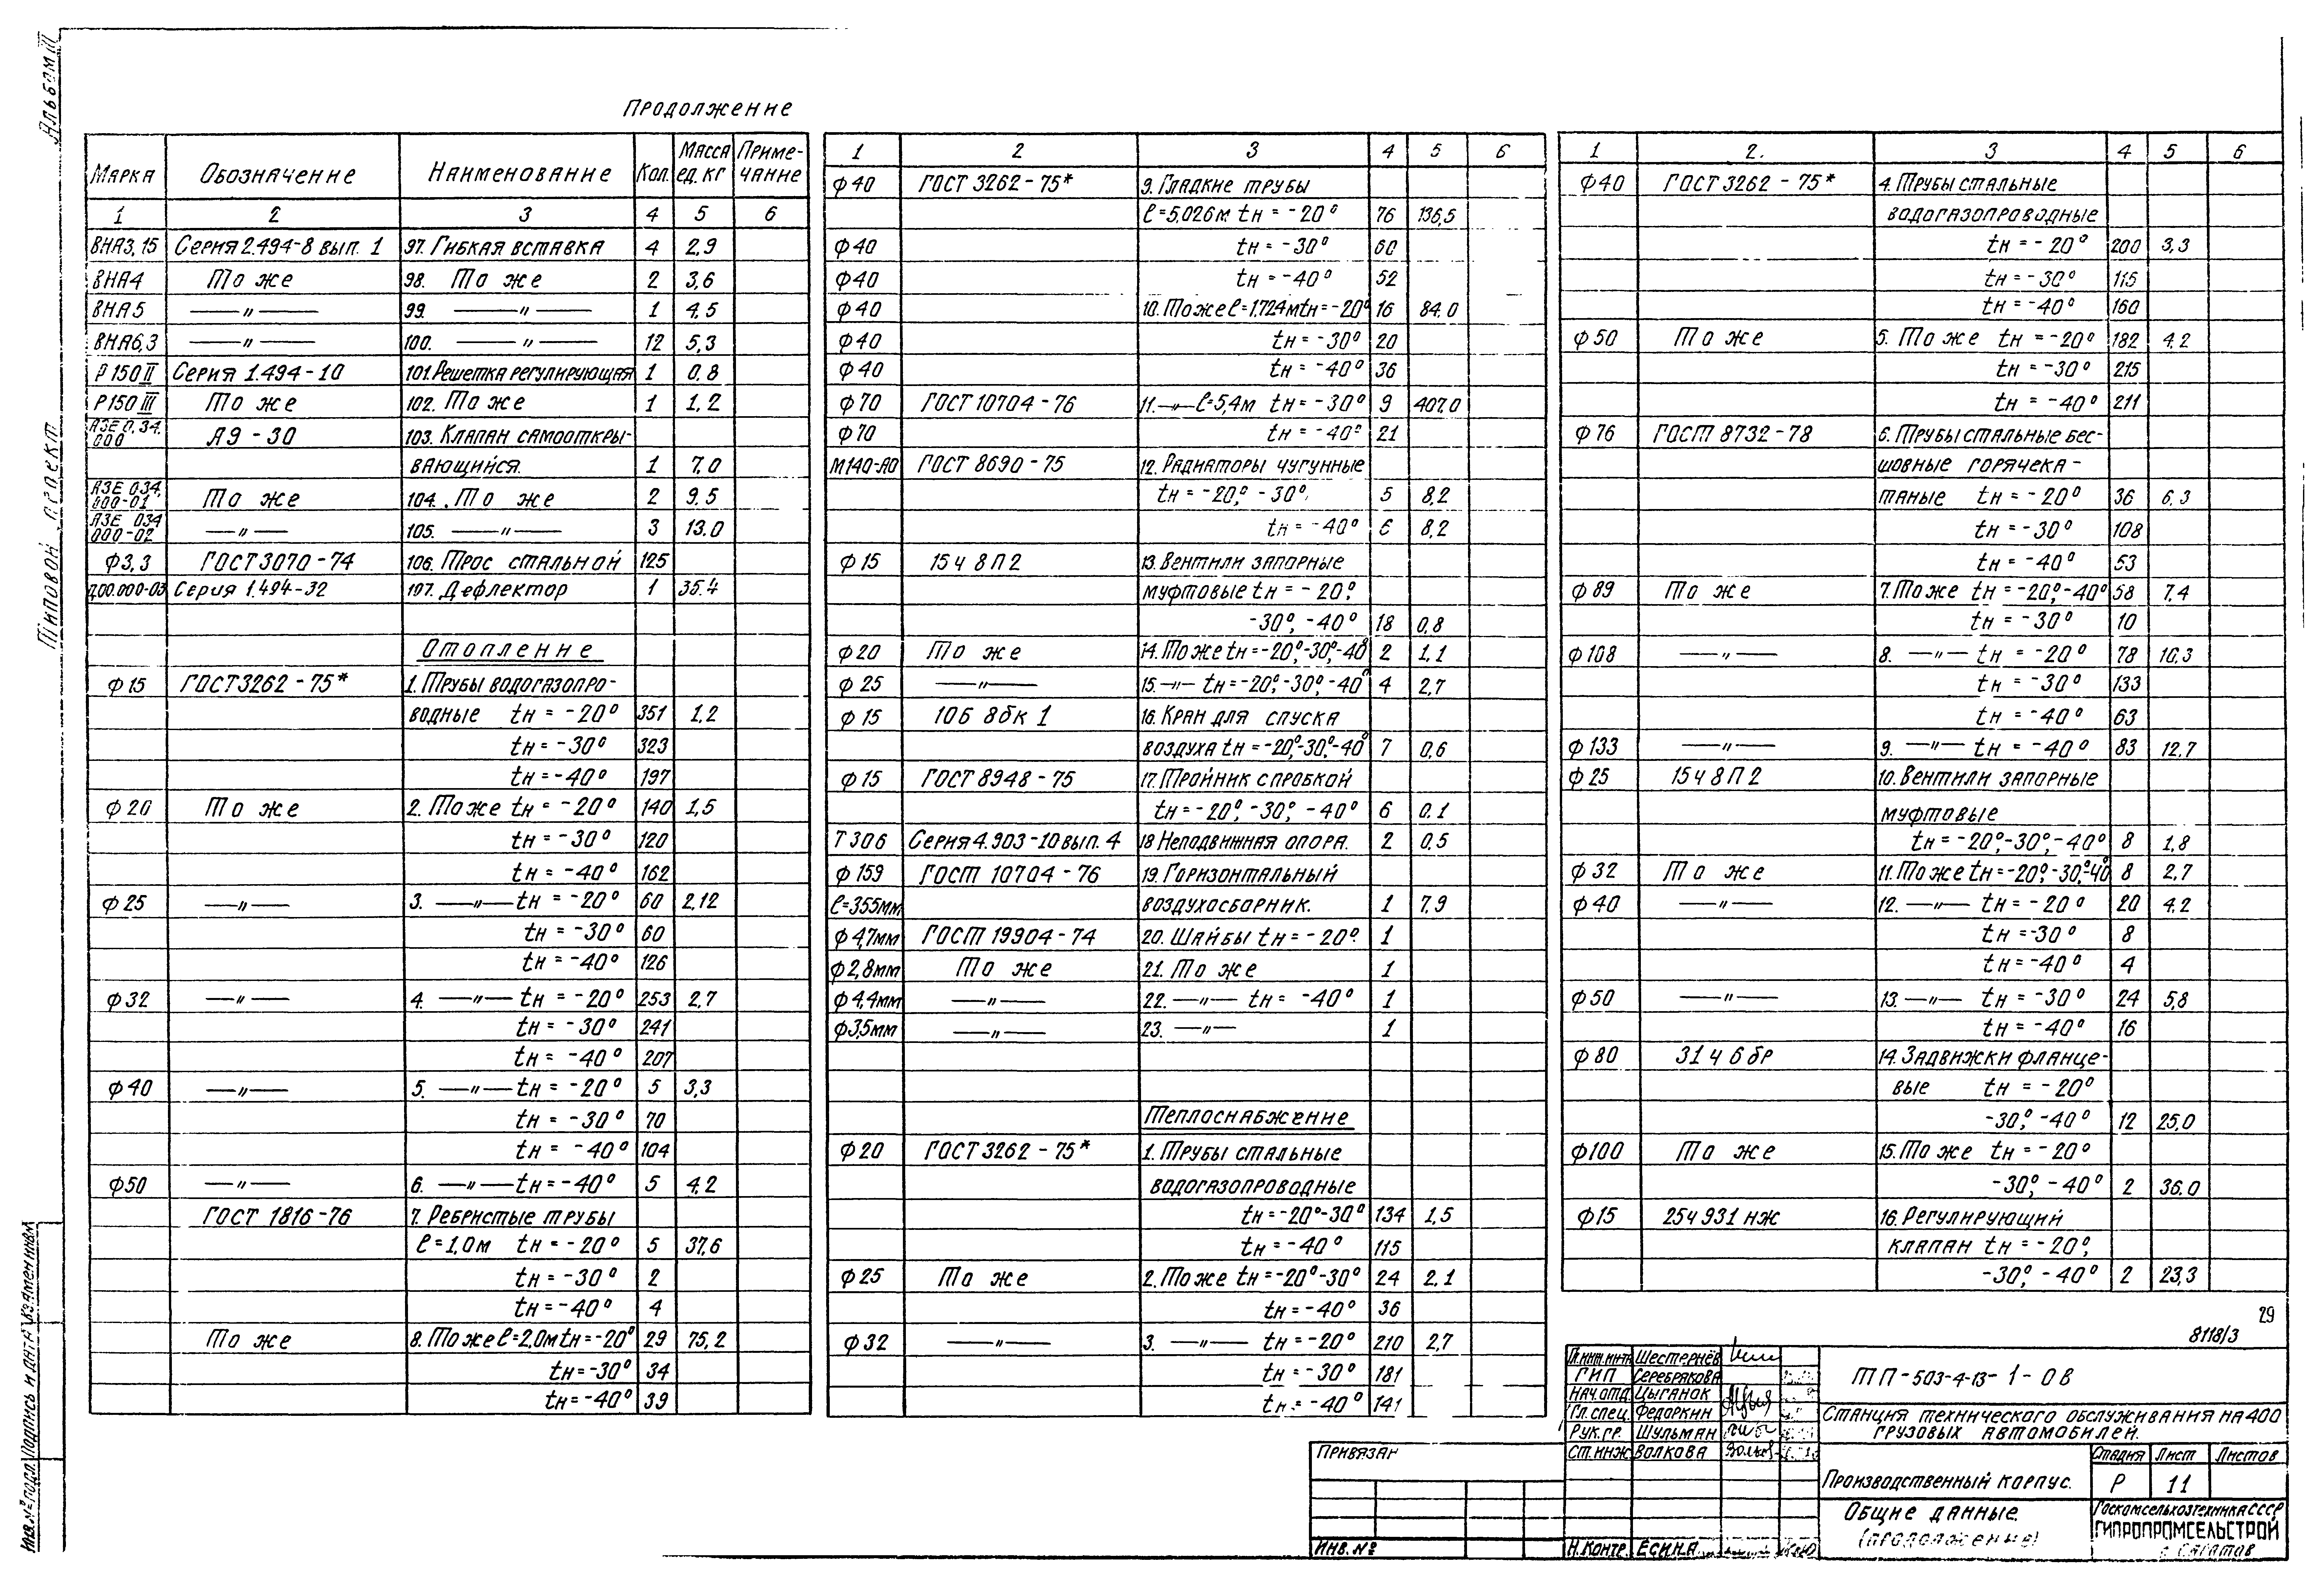 Альбом III
Типовой проект
Продолжение
Марка Обозначение Наименование Кол. Масса ед. кг Приме-чание
1 2 3 4 5 6
ВНА3,15 Серия 2.494-8 вып. 1 97. Гибкая вставка 4 2,9
ВНА4 То же 98. То же 2 3,6
ВНА5 —"— 99. —"— 1 4.5
ВНА6,3 —"— 100. —"— 12 5,3
Р150 II Серия 1.494-10 101. Решетка регулирующая 1 0,8
Р150 III То же 102. То же 1 1,2
АЗЕ 0.34.000 А9-30 103. Клапан самооткры-
вающийся. 1 7,0
АЗЕ 034.000-01 То же 104. То же 2 9.5
АЗЕ 034 000-02 —"— 105. —"— 3 13.0
Ф3,3 ГОСТ 3070-74 106. Трос стальной 125
Д00.000-03 Серия 1.494-32 107. Дефлектор 1 35.4
Отопление
Ф15 ГОСТ 3262-75* 1. Трубы водогазопро-
водные tн = -20° 351 1,2
tн = -30° 323
tн = -40° 197
Ф20 То же 2. То же tн = -20° 140 1,5
tн = -30° 120
tн = -40° 162
Ф25 —"— 3. —"— tн = -20° 60 2,12
tн = -30° 60
tн = -40° 126
Ф32 —"— 4. —"— tн = -20° 253 2,7
tн = -30° 241
tн = -40° 207
Ф40 —"— 5. —"— tн = -20° 5 3,3
tн = -30° 70
tн = -40° 104
Ф50 —"— 6. —"— tн = -40° 5 4,2
ГОСТ 1816-76 7. Ребристые трубы
ℓ = 1,0м tн = -20° 5 37,6
tн = -30° 2
tн = -40° 4
То же 8. То же ℓ=2,0м tн = -20° 29 75,2
tн = -30° 34
tн = -40° 39
1 2 3 4 5 6
Ф40 ГОСТ 3262-75* 9. Гладкие трубы
ℓ = 5,026м tн = -20° 76 136,5
Ф40 tн = -30° 60
Ф40 tн = -40° 52
Ф40 10. То же ℓ=1,724м tн = -20° 16 84,0
Ф40 tн = -30° 20
Ф40 tн = -40° 36
Ф70 ГОСТ 10704-76 11. —"— ℓ=5,4м tн = -30° 9 407,0
Ф70 tн = -40° 21
М140-АО ГОСТ 8690-75 12. Радиаторы чугунные
tн = -20°, -30° 5 8,2
tн = -40° 6 8,2
Ф15 15ч 8П2 13. Вентили запорные
муфтовые tн = -20°,
-30°, -40° 18 0,8
Ф20 То же 14. То же tн = -20°, -30°, -40° 2 1,1
Ф25 —"— 15. —"— tн = -20°, -30°, -40° 4 2,7
Ф15 10Б 8бк 1 16. Кран для спуска
воздуха tн = -20°, -30°, -40° 7 0,6
Ф15 ГОСТ 8948-75 17. Тройник с пробкой
tн = -20°, -30°, -40° 6 0.1
Т306 Серия 4.903-10 вып. 4 18 Неподвижная опора. 2 0,5
Ф159 ГОСТ 10704-76 19. Горизонтальный
ℓ=355мм воздухосборник. 1 7,9
Ф4,7мм ГОСТ 19904-74 20. Шайбы tн = -20° 1
Ф2,8мм То же 21. То же 1
Ф4,4мм —"— 22. —"— tн = -40° 1
Ф3,5мм —"— 23. —"— 1
Теплоснабжение
Ф20 ГОСТ 3262-75* 1. Трубы стальные
водогазопроводные
tн = -20°-30° 134 1,5
tн = -40° 115
Ф25 То же 2. То же tн = -20°-30° 24 2,1
tн = -40° 36
Ф32 —"— 3. —"— tн = -20° 210 2,7
tн = -30° 181
tн = -40° 141
1 2. 3 4 5 6
Ф40 ГОСТ 3262-75* 4. Трубы стальные
водогазопроводные
tн = -20° 200 3,3
tн = -30° 115
tн = -40° 160
Ф50 То же 5. То же tн = -20° 182 4,2
tн = -30° 215
tн = -40° 211
Ф76 ГОСТ 8732-78 6. Трубы стальные бес-
шовные горячека-
таные tн = -20° 36 6,3
tн = -30° 108
tн = -40° 53
Ф89 То же 7. То же tн = -20°, -40° 58 7,4
tн = -30° 10
Ф108 —"— 8. —"— tн = -20° 78 10,3
tн = -30° 133
tн = -40° 63
Ф133 —"— 9. —"— tн = -40° 83 12.7
Ф25 15ч 8П2 10. Вентили запорные
муфтовые
tн = -20°, -30°, -40° 8 1,8
Ф32 То же 11. То же tн = -20°, -30°, -40° 8 2,7
Ф40 —"— 12. —"— tн = -20° 20 4,2
tн = -30° 8
tн = -40° 4
Ф50 —"— 13. —"— tн = -30° 24 5,8
tн = -40° 16
Ф80 31ч 6бр 14. Задвижки фланце-
вые tн = -20°
-30°, -40° 12 25,0
Ф100 То же 15. То же tн = -20°
-30°, -40° 2 36.0
Ф15 25ч 931 нж 16. Регулирующий
клапан tн = -20°,
-30°, -40° 2 23,3
29
8118/3
Гл.инж.инта Шестернёв
ГИП Серебрякова
Нач.отд. Цыганок
Гл.спец. Федоркин
Рук.гр. Шульман
Ст.инж. Волкова
Н.контр. Есина
ТП-503-4-13-1-ОВ
Станция технического обслуживания на 400
грузовых автомобилей.
Производственный корпус.
Стадия Лист Листов
Р 11
Общие данные
(продолжение)
Госкомсельхозтехника СССР
ГИПРОПРОМСЕЛЬСТРОЙ
г. Саратов
Привязан
Инв. №
Инв. № подл. Подпись и дата Взамен инв. №